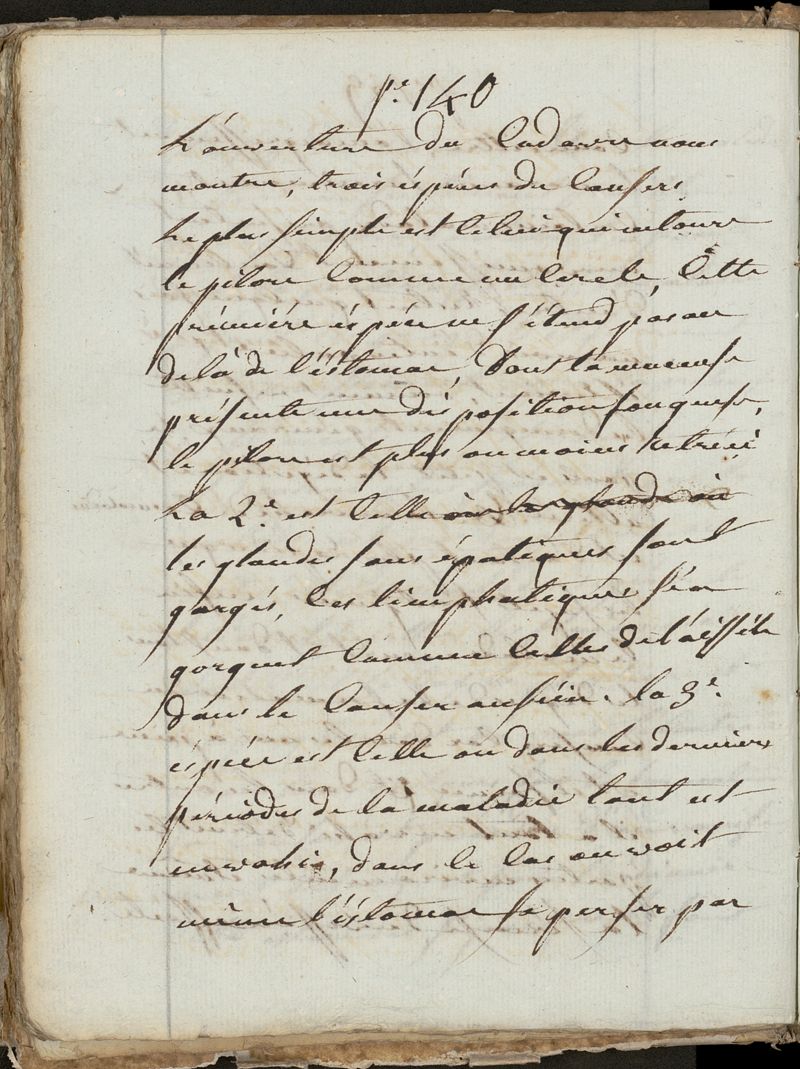 pe. 140
L'ouverture du Cadavre nous
montre, trois éspéces du Canser,
Le plus simple est Celui qui entoure
le pilore Comme un Cercle, Cette
prémière éspéce ne s'étend pas au
delà de l'éstomac, Dont la muceuse
présente une disposition fonguese,
le pilore est plus ou moins retréci
La 2e. est Celle ou les glande où
les glandes sous épatiques sont
gorgés, les limphatiques s'en
gorgent Comme Celles de l'aissèle
dans le Canser au sein. la 3e.
éspéce est Celle ou dans les derniers
périòdes de la maladie tout est
envahi, dans ce Cas on voit
même l'éstomac se perser par